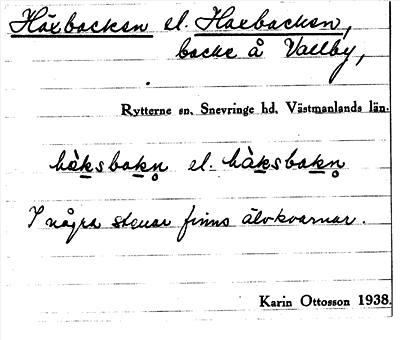 Häxbacken el. Haxbacken,
backe å Vallby,
Rytterne sn. Snevringe hd. Västmanlands län.
hàksbakn el. hàksbakn
I några stenar finns älvkvarnar.
Karin Ottosson 1938.